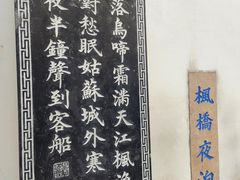 楓橋夜泊
落烏啼霜滿天江楓漁
對愁眠姑蘇城外寒
夜半鐘聲到客船